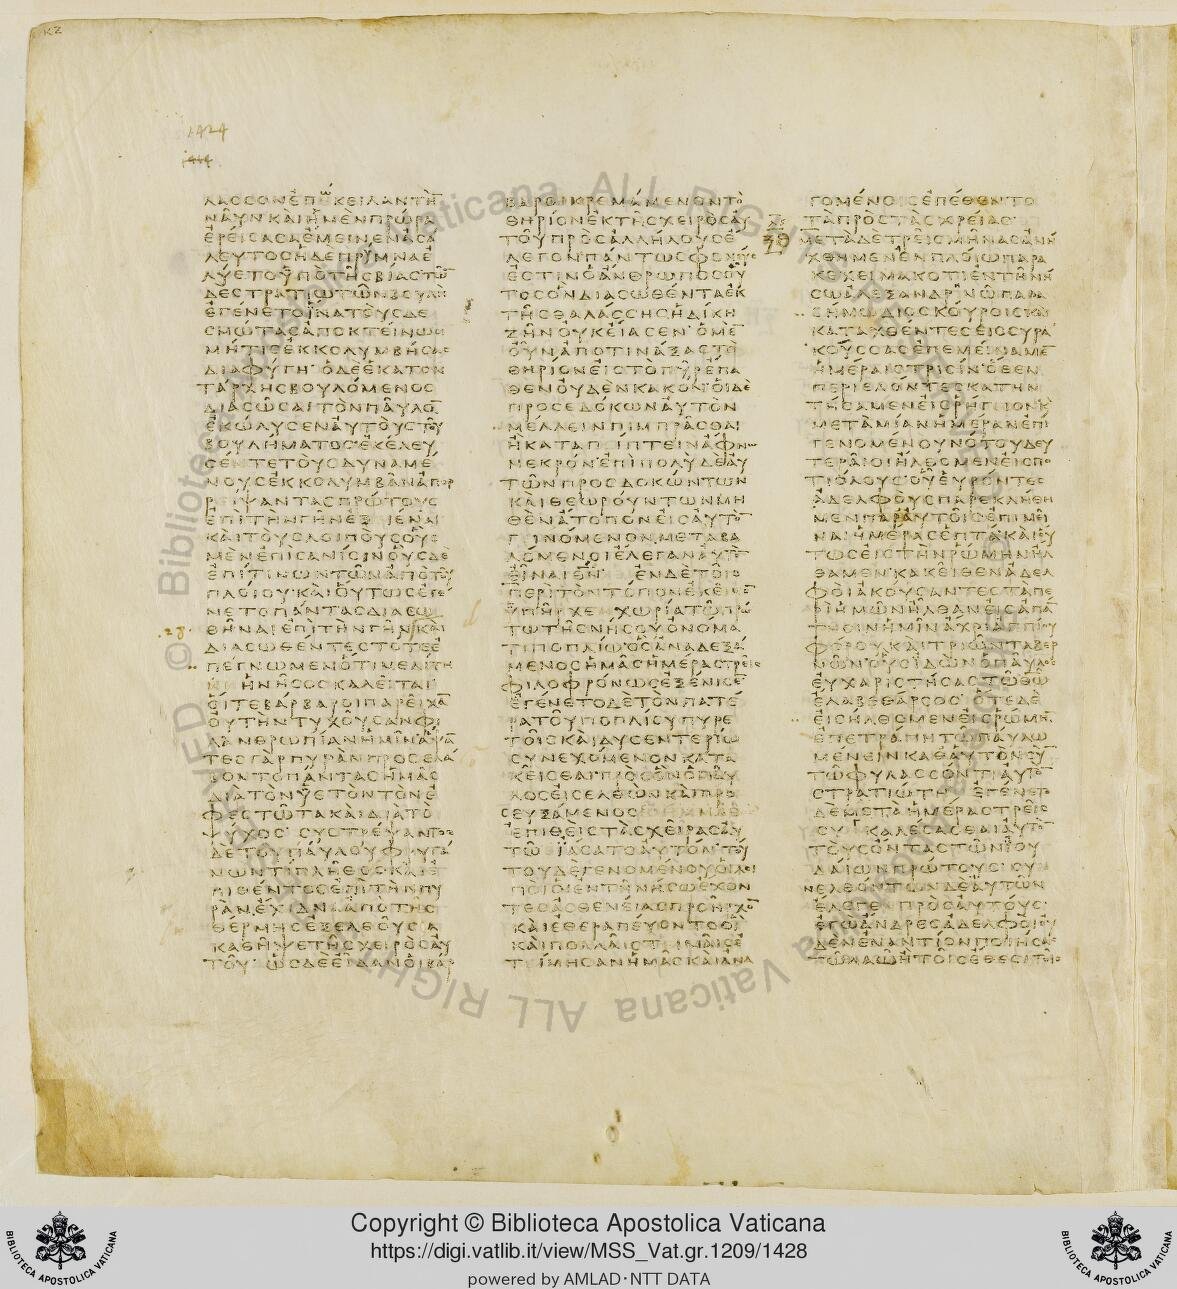 κζ
1424
ΛΑΣΣΟΝΕΠΩΚΕΙΛΑΝΤΗ̄
ΝΑΥΝΚΑΙΗΜΕΝΠΡΩΡΑ
ΕΡΕΙΣΑΣΑΕΜΕΙΝΕΝΑΣΑ
ΛΕΥΤΟΣΗΔΕΠΡΥΜΝΑΕ
ΛΥΕΤΟΫΠΟΤΗΣΒΙΑΣΤΩ̄
ΔΕΣΤΡΑΤΙΩΤΩΝΒΟΥΛΗ
ΕΓΕΝΕΤΟΪΝΑΤΟΥΣΔΕ
ΣΜΩΤΑΣΑΠΟΚΤΕΙΝΩΣΙ
ΜΗΤΙΣΕΚΚΟΛΥΜΒΗΣΑΣ
ΔΙΑΦΥΓΗ·ΟΔΕΕΚΑΤΟΝ
ΤΑΡΧΗΣΒΟΥΛΟΜΕΝΟΣ
ΔΙΑΣΩΣΑΙΤΟΝΠΑΥΛΟ̄
ΕΚΩΛΥΣΕΝΑΥΤΟΥΣΤΟΥ
ΒΟΥΛΗΜΑΤΟΣ·ΕΚΕΛΕΥ
ΣΕΝΤΕΤΟΥΣΔΥΝΑΜΕ
ΝΟΥΣΕΚΚΟΛΥΜΒΑΝΑΠΟΡ
ΡΕΙΨΑΝΤΑΣΠΡΩΤΟΥΣ
ΕΠΙΤΗΝΓΗΝΕΞΙΕΝΑΙ
ΚΑΙΤΟΥΣΛΟΙΠΟΥΣΟΥΣ
ΜΕΝΕΠΙΣΑΝΙΣΙΝΟΥΣΔΕ
ΕΠΙΤΙΝΩΝΤΩΝΑΠΟΤΟΥ
ΠΛΟΙΟΥ·ΚΑΙΟΥΤΩΣΕΓΕ
ΝΕΤΟΠΑΝΤΑΣΔΙΑΣΩ
ΘΗΝΑΙΕΠΙΤΗΝΓΗΝΚΑΙ
ΔΙΑΣΩΘΕΝΤΕΣΤΟΤΕΕ
ΠΕΓΝΩΜΕΝΟΤΙΜΕΛΙΤΗ
ΝΗΗΝΗΣΟΣΚΑΛΕΙΤΑΙ
ΟΙΤΕΒΑΡΒΑΡΟΙΠΑΡΕΙΧᾹ
ΟΥΤΗΝΤΥΧΟΥΣΑΝΦΙ
ΛΑΝΘΡΩΠΙΑΝΗΜΙΝΑΨᾹ
ΤΕΣΓΑΡΠΥΡΑΝΠΡΟΣΕΛΑ
ΒΟΝΤΟΠΑΝΤΑΣΗΜΑΣ
ΔΙΑΤΟΝΫΕΤΟΝΤΟΝΕ
ΦΕΣΤΩΤΑΚΑΙΔΙΑΤΟ
ΨΥΧΟΣ·ΣΥΣΤΡΕΨΑΝΤΟΣ
ΔΕΤΟΥΠΑΥΛΟΥΦΡΥΓΑ
ΝΩΝΤΙΠΛΗΘΟΣ·ΚΑΙΕ
ΠΙΘΕΝΤΟΣΕΠΙΤΗΝΠΥ
ΡΑΝ,ΕΧΙΔΝΑΑΠΟΤΗΣ
ΘΕΡΜΗΣΕΞΕΛΘΟΥΣΑ
ΚΑΘΗΨΕΤΗΣΧΕΙΡΟΣΑΥ
ΤΟΥ·ΩΣΔΕΕΙΔΑΝΟΙΒΑΡ
ΒΑΡΟΙΚΡΕΜΑΜΕΝΟΝΤΟ
ΘΗΡΙΟΝΕΚΤΗΣΧΕΙΡΟΣΑΥ
ΤΟΥΠΡΟΣΑΛΛΗΛΟΥΣΕ
ΛΕΓΟΝΠΑΝΤΩΣΦΟΝΕΥΣ
ΕΣΤΙΝΟΑΝΘΡΩΠΟΣΟΥ
ΤΟΣΟΝΔΙΑΣΩΘΕΝΤΑΕΚ
ΤΗΣΘΑΛΑΣΣΗΣΗΔΙΚΗ
ΖΗΝΟΥΚΕΙΑΣΕΝ·ΟΜΕ̄
ΟΥΝΑΠΟΤΙΝΑΞΑΣΤΟ
ΘΗΡΙΟΝΕΙΣΤΟΠΥΡΕΠΑ
ΘΕΝΟΥΔΕΝΚΑΚΟΝ·ΟΙΔΕ
ΠΡΟΣΕΔΟΚΩΝΑΥΤΟΝ
ΜΕΛΛΕΙΝΠΙΜΠΡΑΣΘΑΙ
ΗΚΑΤΑΠΙΠΤΕΙΝΑΦΝΩ
ΝΕΚΡΟΝ·ΕΠΙΠΟΛΥΔΕΑΥ
ΤΩΝΠΡΟΣΔΟΚΩΝΤΩΝ
ΚΑΙΘΕΩΡΟΥΝΤΩΝΜΗ
ΘΕΝΑΤΟΠΟΝΕΙΣΑΥΤΟ̄
ΓΙΝΟΜΕΝΟΝ,ΜΕΤΑΒΑ
ΛΟΜΕΝΟΙΕΛΕΓΑΝΑΥΤΟ̄
ΕΙΝΑΙΘΝ̄ ΕΝΔΕΤΟΙΣ
ΠΕΡΙΤΟΝΤΟΠΟΝΕΚΕΙΝΟ̄
ΫΠΗΡΧΕΝΧΩΡΙΑΤΩΠΡΩ
ΤΩΤΗΣΝΗΣΟΥΟΝΟΜΑ
ΤΙΠΟΠΛΙΩ·ΟΣΑΝΑΔΕΞΑ
ΜΕΝΟΣΗΜΑΣΗΜΕΡΑΣΤΡΕΙΣ
ΦΙΛΟΦΡΟΝΩΣΕΞΕΝΙΣΕ̄
ΕΓΕΝΕΤΟΔΕΤΟΝΠΑΤΕ
ΡΑΤΟΥΠΟΠΛΙΟΥΠΥΡΕ
ΤΟΙΣΚΑΙΔΥΣΕΝΤΕΡΙΩ
ΣΥΝΕΧΟΜΕΝΟΝΚΑΤΑ
ΚΕΙΣΘΑΙ·ΠΡΟΣΟΝΟΠΑΥ
ΛΟΣΕΙΣΕΛΘΩΝΚΑΙΠΡΟ
ΣΕΥΞΑΜΕΝΟΣ
ΕΠΙΘΕΙΣΤΑΣΧΕΙΡΑΣΑΥ
ΤΩΪΑΣΑΤΟΑΥΤΟΝ·ΤΟΥ
ΤΟΥΔΕΓΕΝΟΜΕΝΟΥΟΙΛΟΙ
ΠΟΙΟΙΕΝΤΗΝΗΣΩΕΧΟΝ
ΤΕΣΑΣΘΕΝΕΙΑΣΠΡΟΣΗΡΧΟ̄
ΚΑΙΕΘΕΡΑΠΕΥΟΝΤΟΟΙ
ΚΑΙΠΟΛΛΑΙΣΤΙΜΑΙΣΕ
ΤΙΜΗΣΑΝΗΜΑΣΚΑΙΑΝΑ
ΓΟΜΕΝΟΙΣΕΠΕΘΕΝΤΟ
ΤΑΠΡΟΣΤΑΣΧΡΕΙΑΣ·
ΜΕΤΑΔΕΤΡΕΙΣΜΗΝΑΣΑΝΗ
ΧΘΗΜΕΝΕΝΠΛΟΙΩΠΑΡΑ
ΚΕΧΕΙΜΑΚΟΤΙΕΝΤΗΝΗ
ΣΩΑΛΕΞΑΝΔΡΙΝΩΠΑΡΑ
ΣΗΜΩΔΙΟΣΚΟΥΡΟΙΣΚΑΙ
ΚΑΤΑΧΘΕΝΤΕΣΕΙΣΣΥΡΑ
ΚΟΥΣΣΑΣΕΠΕΜΕΙΝΑΜΕ̄
ΗΜΕΡΑΙΣΤΡΙΣΙΝΟΘΕΝ
ΠΕΡΙΕΛΟΝΤΕΣΚΑΤΗΝ
ΤΗΣΑΜΕΝΕΙΣΡΗΓΙΟΝΚ
ΜΕΤΑΜΙΑΝΗΜΕΡΑΝΕΠΙ
ΓΕΝΟΜΕΝΟΥΝΟΤΟΥΔΕΥ
ΤΕΡΑΙΟΙΗΛΘΟΜΕΝΕΙΣΠΟ
ΤΙΟΛΟΥΣ·ΟΥΕΥΡΟΝΤΕΣ
ΑΔΕΛΦΟΥΣΠΑΡΕΚΛΗΘΗ
ΜΕΝΠΑΡΑΥΤΟΙΣΕΠΙΜΕΙ
ΝΑΙΗΜΕΡΑΣΕΠΤΑΚΑΙΟΥ
ΤΩΣΕΙΣΤΗΝΡΩΜΗΝΗΛ
ΘΑΜΕΝ·ΚΑΚΕΙΘΕΝΑΔΕΛ
ΦΟΙΑΚΟΥΣΑΝΤΕΣΤΑΠΕ
ΡΙΗΜΩΝΗΛΘΑΝΕΙΣΑΠᾹ
ΤΗΣΙΝΗΜΙΝΑΧΡΙΑΠΠΙΟΥ
ΦΟΡΟΥΚΑΙΤΡΙΩΝΤΑΒΕΡ
ΝΩΝ·ΟΥΣΪΔΩΝΟΠΑΥΛΟΣ
ΕΥΧΑΡΙΣΤΗΣΑΣΤΩΘΩ̄
ΕΛΑΒΕΘΑΡΣΟΣ·ΟΤΕΔΕ
ΕΙΣΗΛΘΟΜΕΝΕΙΣΡΩΜΗ̄
ΕΠΕΤΡΑΠΗΤΩΠΑΥΛΩ
ΜΕΝΕΙΝΚΑΘΑΥΤΟΝΣῩ
ΤΩΦΥΛΑΣΣΟΝΤΙΑΥΤΟ̄
ΣΤΡΑΤΙΩΤΗ ΕΓΕΝΕΤΟ
ΔΕΜΕΤΑΗΜΕΡΑΣΤΡΕΙΣ
ΣΥΓΚΑΛΕΣΑΣΘΑΙΑΥΤΟ̄
ΤΟΥΣΟΝΤΑΣΤΩΝΪΟΥ
ΔΑΙΩΝΠΡΩΤΟΥΣ·ΣΥ
ΝΕΛΘΟΝΤΩΝΔΕΑΥΤΩΝ
ΕΛΕΓΕΝΠΡΟΣΑΥΤΟΥΣ·
ΕΓΩΑΝΔΡΕΣΑΔΕΛΦΟΙΟΥ
ΔΕΝΕΝΑΝΤΙΟΝΠΟΙΗΣΑΣ
ΤΩΛΑΩΗΤΟΙΣΕΘΕΣΙΤΟΙΣ
Copyright © Biblioteca Apostolica Vaticana
https://digi.vatlib.it/view/MSS_Vat.gr.1209/1428
powered by AMLAD·NTT DATA